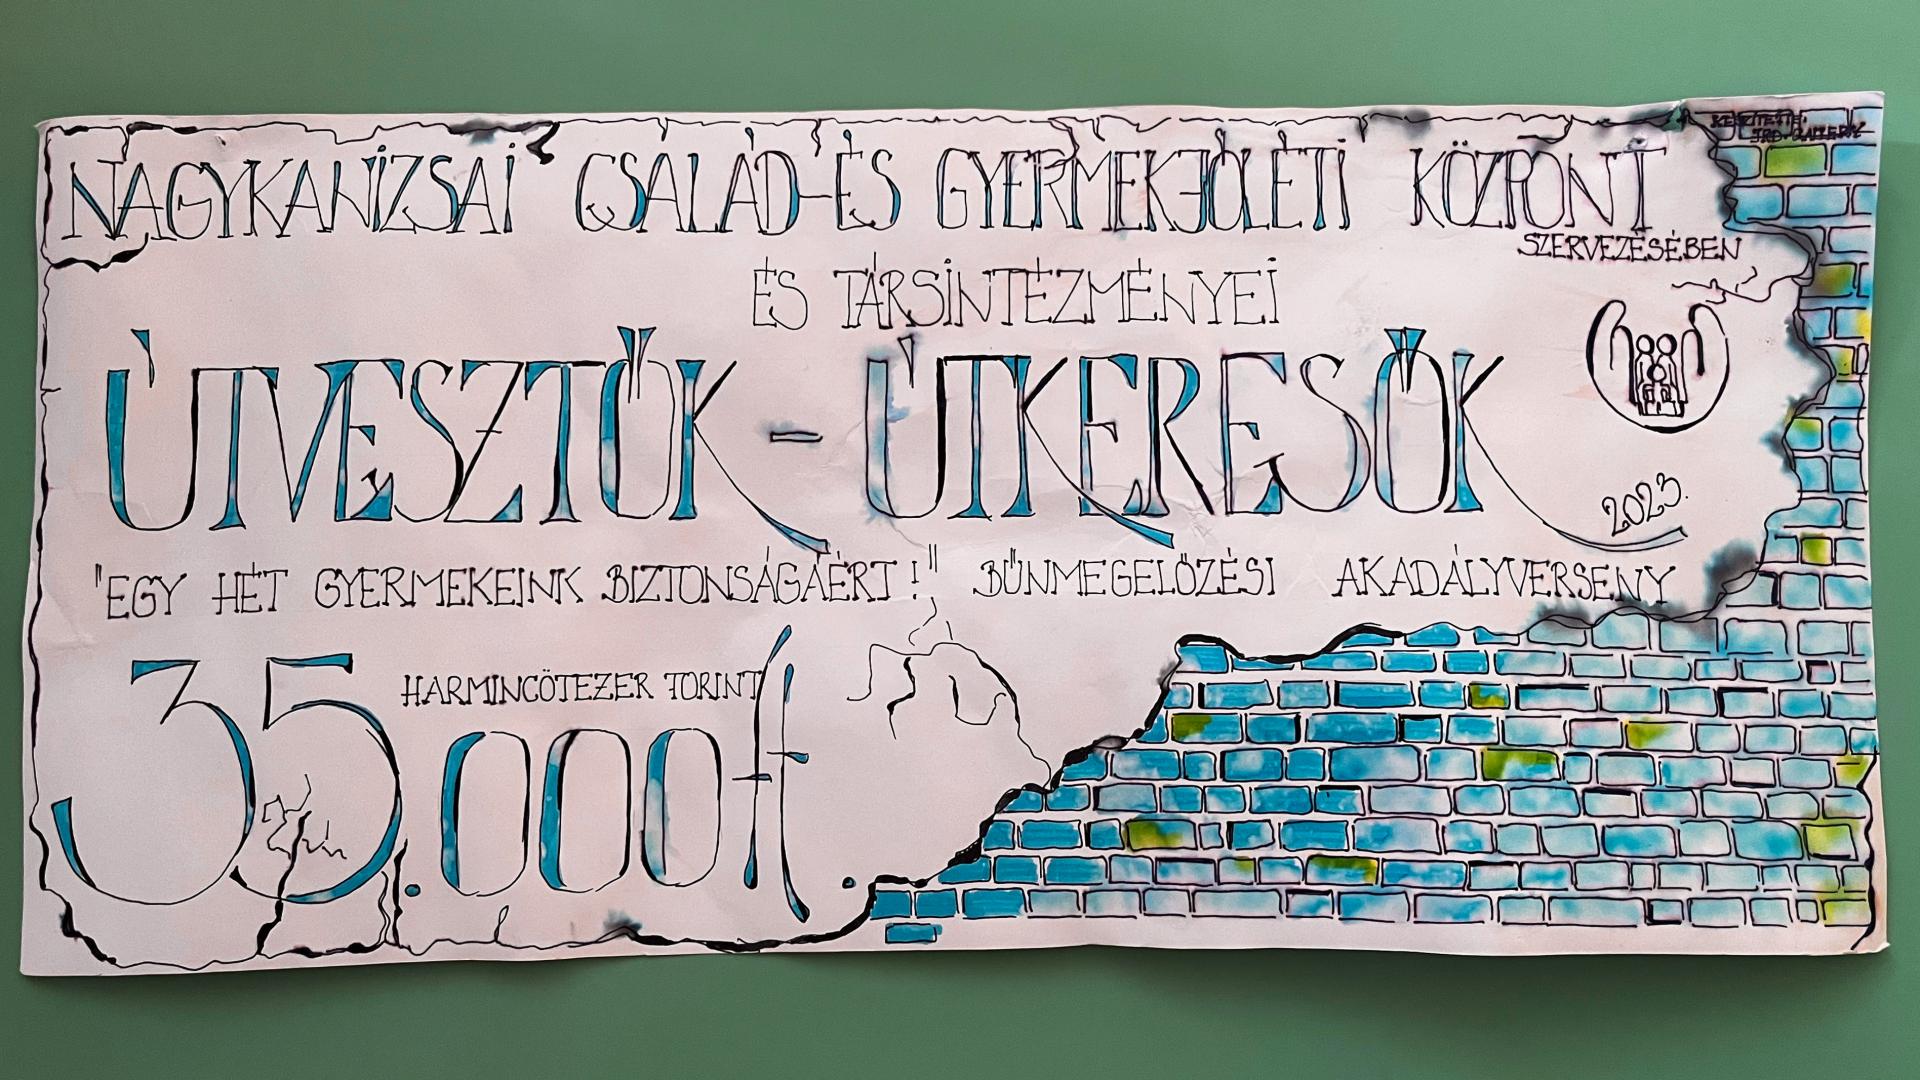 KÉSZÍTETTE:
JRD-GALLERY
NAGYKANIZSAI CSALÁD-ÉS GYERMEKJÓLÉTI KÖZPONT
SZERVEZÉSÉBEN
ÉS TÁRSINTÉZMÉNYEI
ÚTVESZTŐK - ÚTKERESŐK
2023.
"EGY HÉT GYERMEKEINK BIZTONSÁGÁÉRT!" BŰNMEGELŐZÉSI AKADÁLYVERSENY
HARMINCÖTEZER FORINT
35.000 Ft.